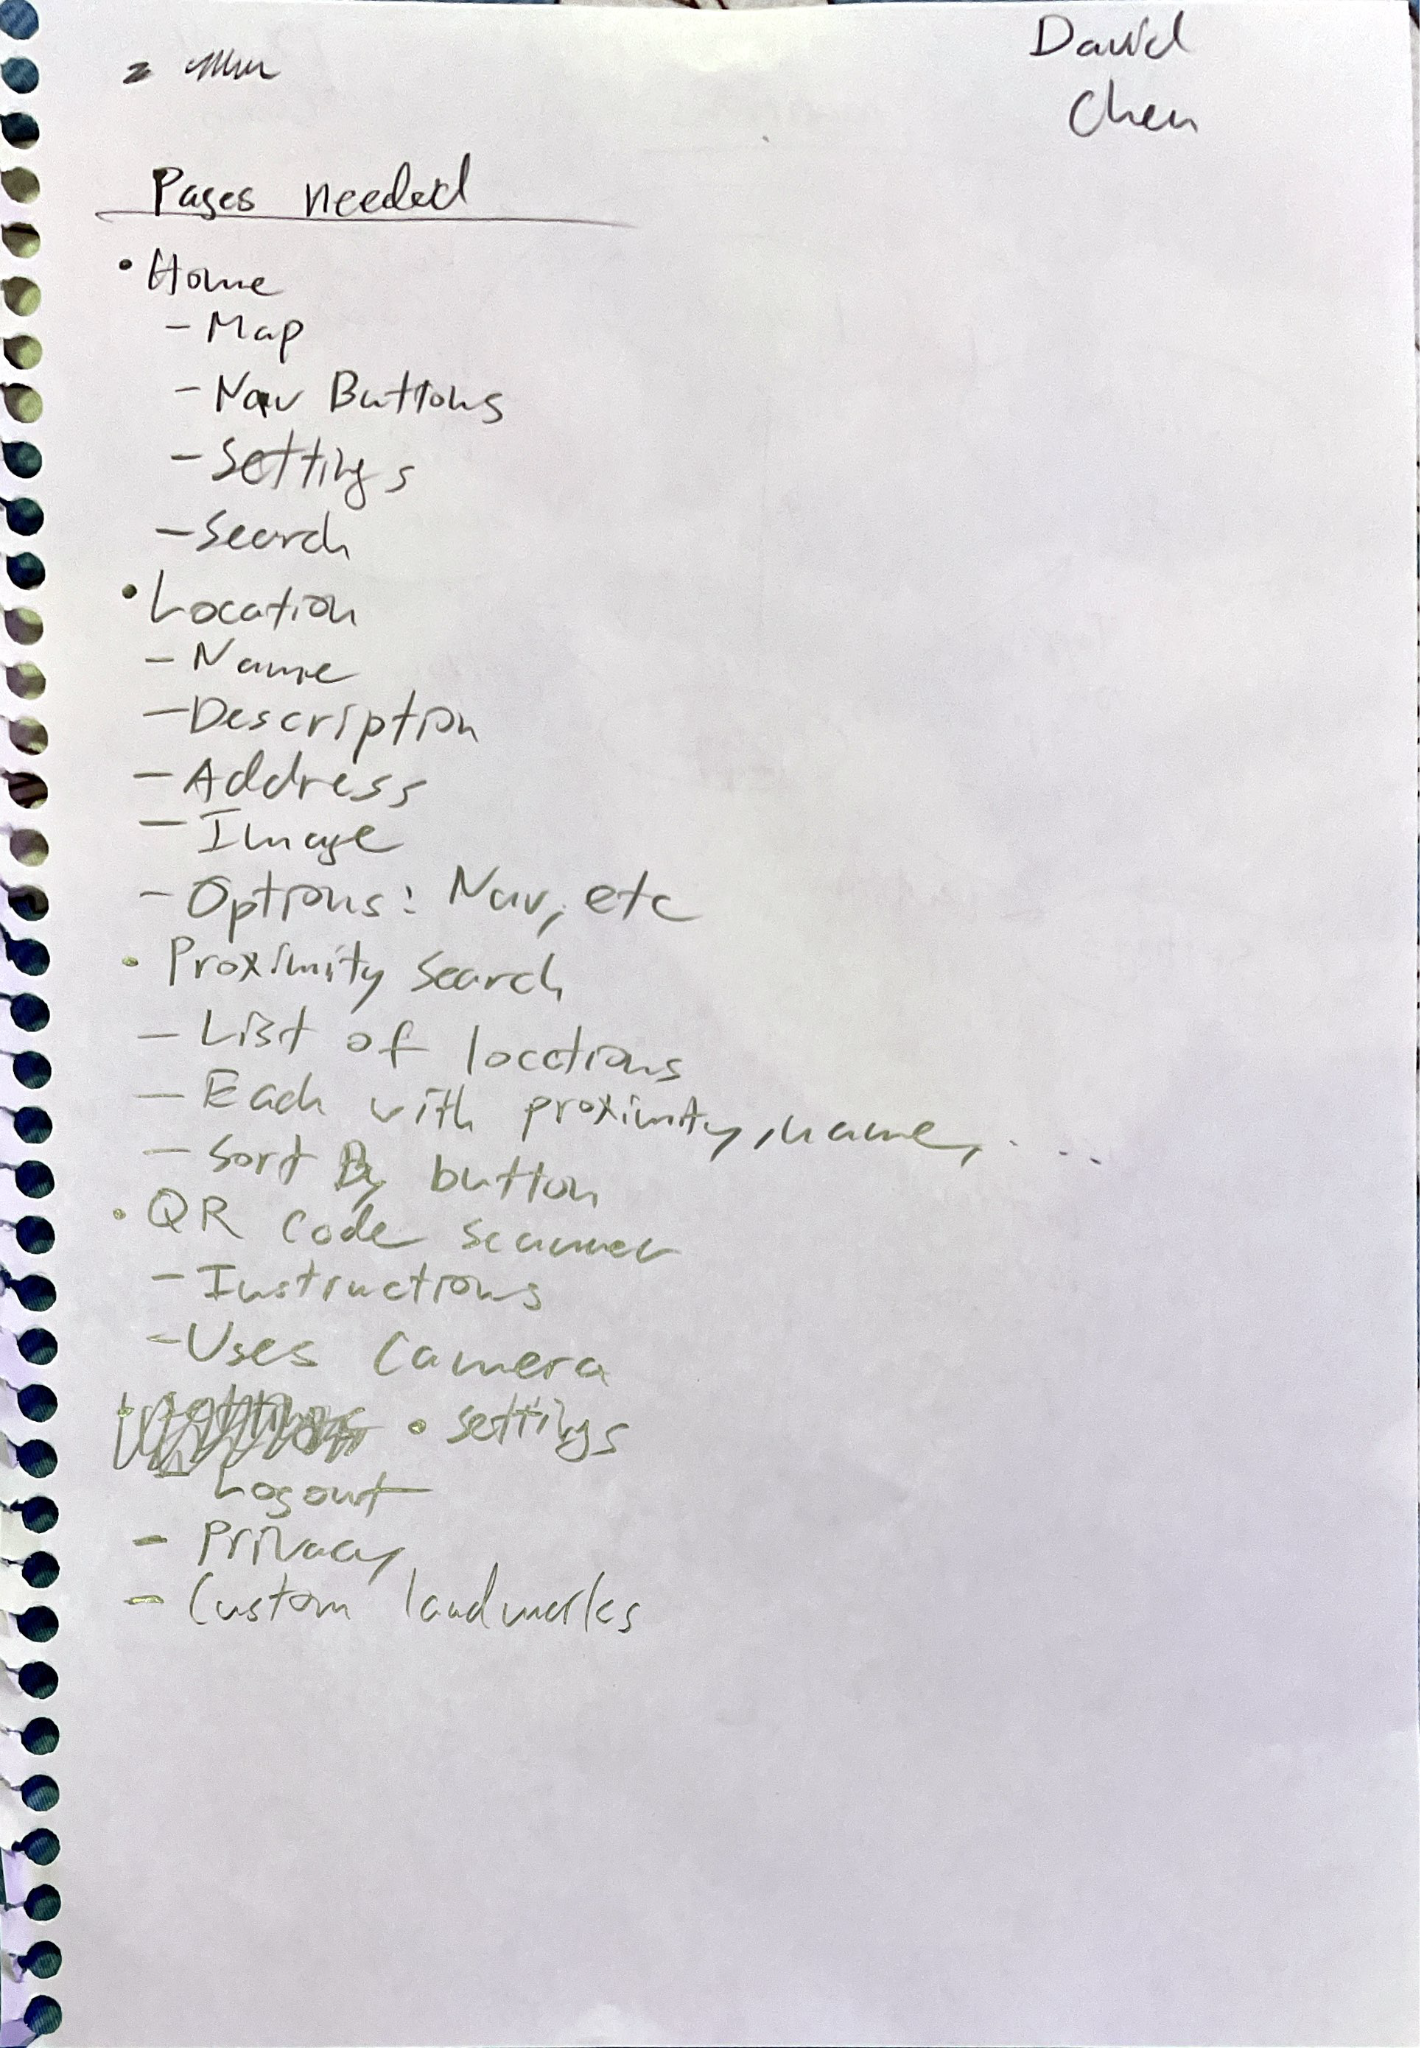 David
Chen
Pages needed
• Home
- Map
- Nav Buttons
- Settings
- Search
• Location
- Name
- Description
- Address
- Image
- Options: Nav, etc
• Proximity Search
- List of locations
- Each with proximity, name, ...
- Sort By button
• QR Code scanner
- Instructions
- Uses Camera
• settings
- Logout
- Privacy
- Custom landmarks